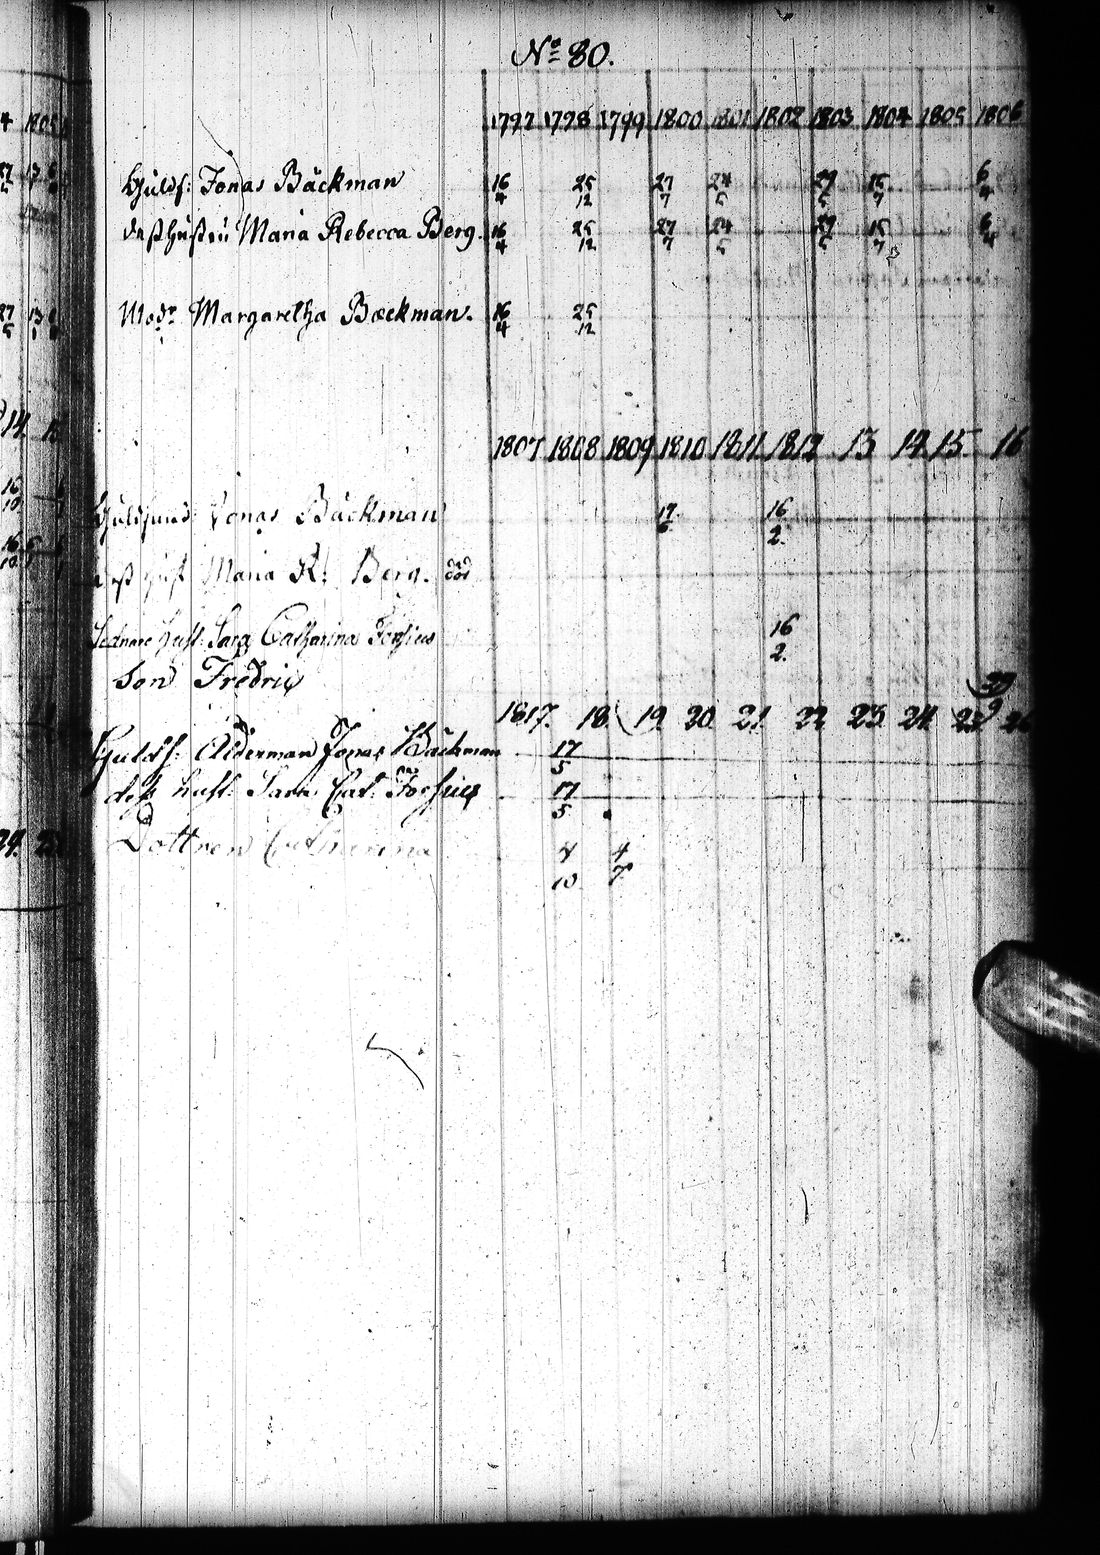 No 80.
1797 1798 1799 1800 1801 1802 1803 1804 1805 1806
Guldf: Jonas Bäckman 16/4 25/12 27/7 24/5 29/5 15/7 6/4
dess hustru Maria Rebecca Berg. 16/4 25/12 27/7 24/5 29/5 15/7 6/4
Mod:r Margaretha Bäckman. 16/4 25/12
1807 1808 1809 1810 1811 1812 13 14 15 16
Guldsmed Jonas Bäckman 17/6 16/2.
dess hust Maria R: Berg. död
Sednare hust: Sara Catharina Forsius 16/2.
Son Fredric 29/9
1817. 18 19 20 21 22 23 24 25 26
Guldf: Alderman Jonas Bäckman 17/5
dess hust: Sara Cat: Forsius 17/5
Dottren Catharina 4/10 4/7